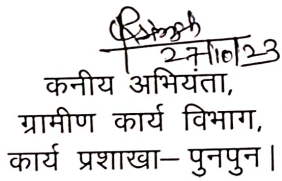 27/10/23
कनीय अभियंता,
ग्रामीण कार्य विभाग,
कार्य प्रशाखा– पुनपुन।